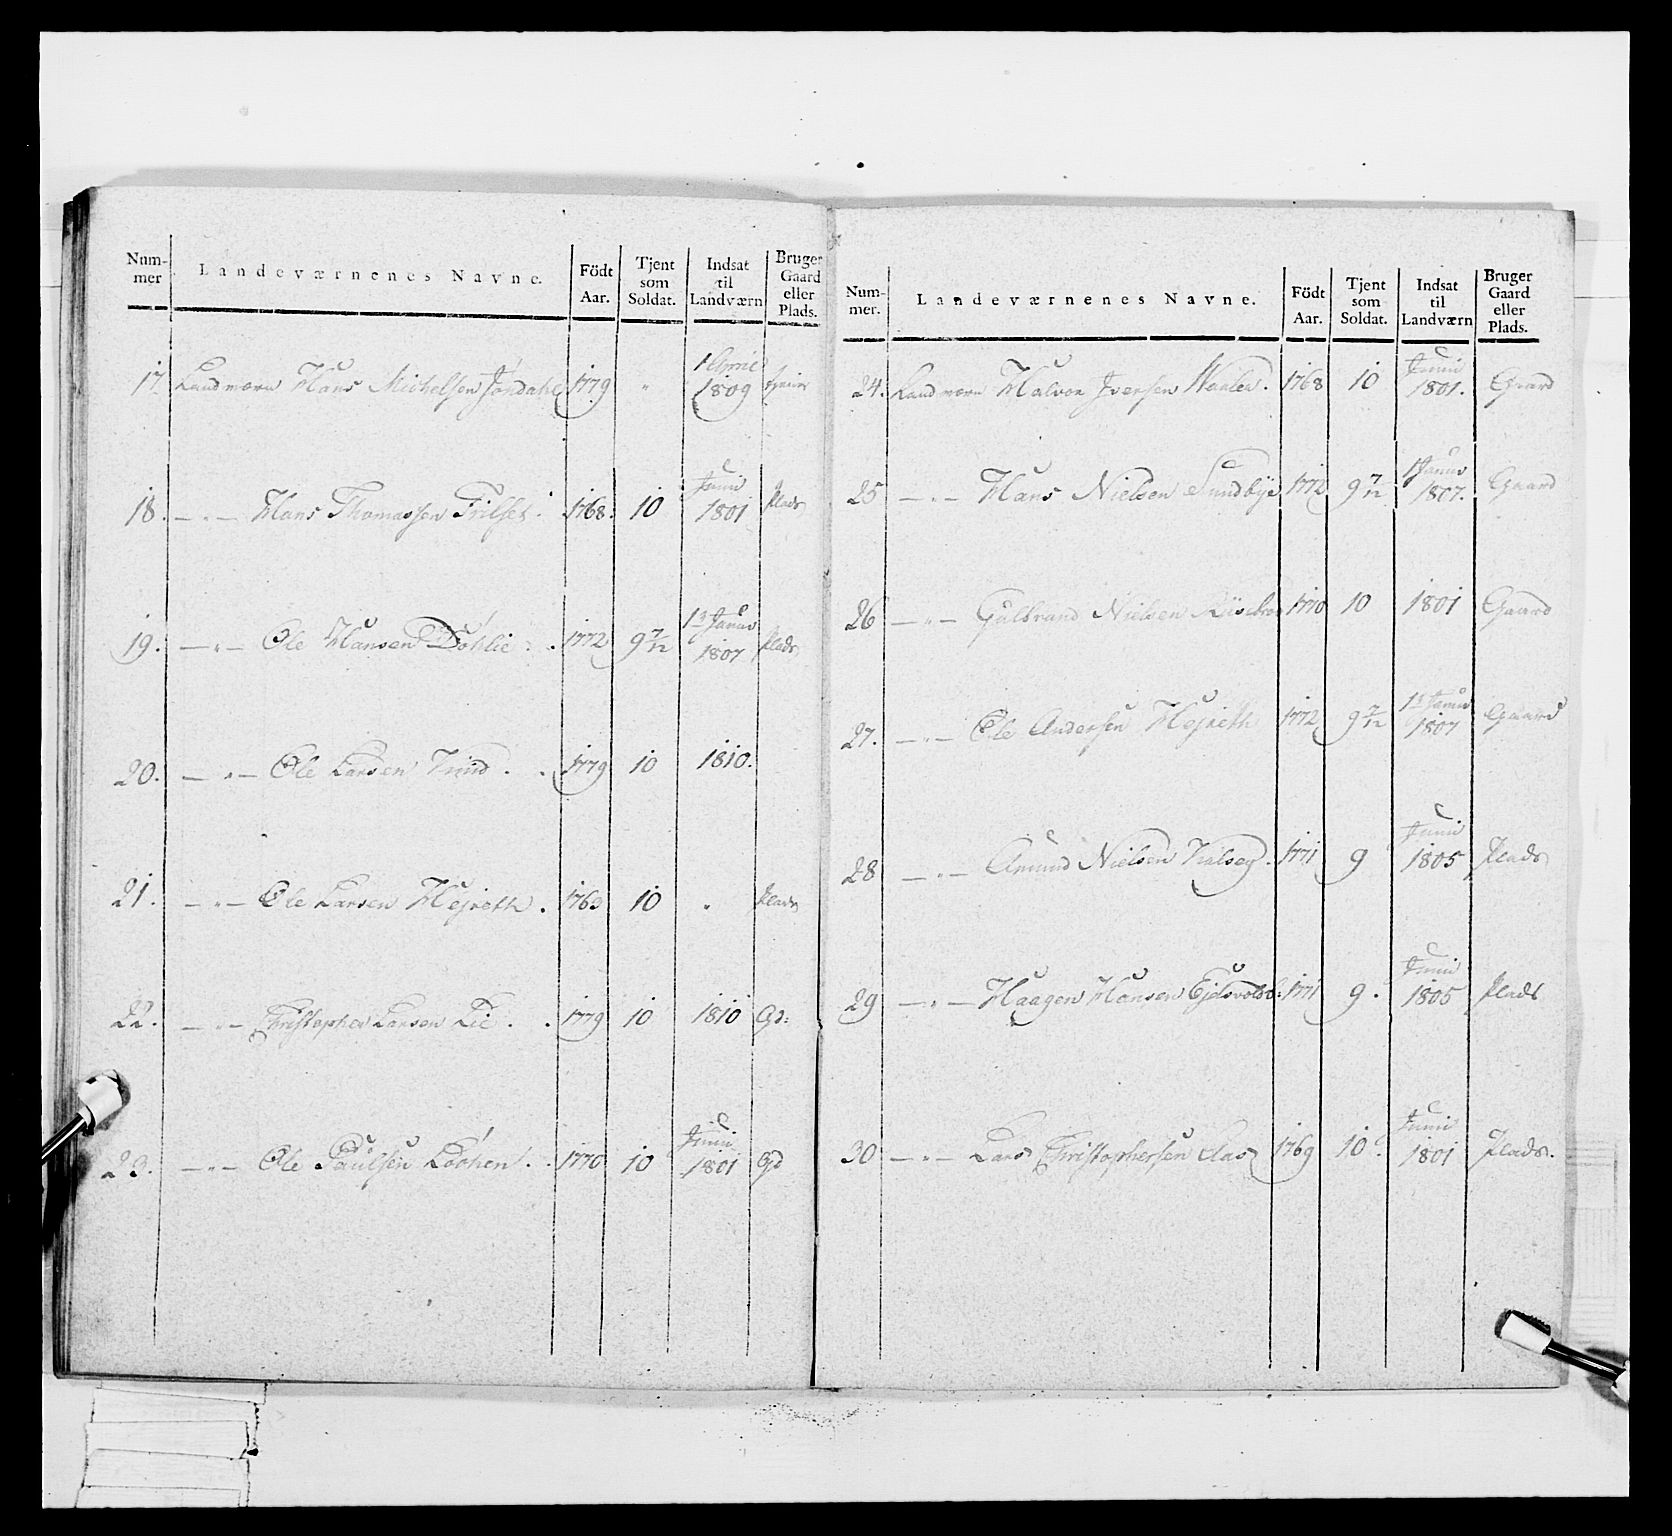 Num-
mer
Landeværnenes Navne.
Födt
Aar.
Tjent
som
Soldat.
Indsat
til
Landværn
Bruger
Gaard
eller
Plads.
17. Landværn Hans Michelsen Jöndahl 1779 " 1 April 1809 tjener
18. — " — Hans Thomassen Trilset. 1768. 10 Juni 1801 Plads
19. — " — Ole Hansen Döhlie . 1772 9 7/12 1 Januar 1807 Plads
20. — " — Ole Larsen . . 1779 10 1810.
21. — " — Ole Larsen Mejreth . 10 " Plads
22. — " — Christopher Larsen Lie . . 1779 10 1810 Gd:
23. — " — Ole Paulsen . 1770 10 Juni 1801 Gd
Num-
mer.
Landeværnenes Navne.
Födt
Aar.
Tjent
som
Soldat.
Indsat
til
Landværn
Bruger
Gaard
eller
Plads.
24. Landværn Halvor Iversen . 1768 10 Juni 1801. Gaard
25 — " — Hans Nielsen Sundbye 1772 9 7/12 1 Januar 1807. Gaard
26 — " — Gulbrand Nielsen 1770 10 1801 Gaard
27. — " — Ole Andersen Mejreth 1772 9 7/12 1 Januar 1807 Gaard
28 — " — Amund Nielsen . 1771 9 Juni 1805 Plads
29 — " — Haagen Hansen 1771 9. Juni 1805 Plads
30 — " — Lars Christophersen Aas 1769 10. Juni 1801 Plads.